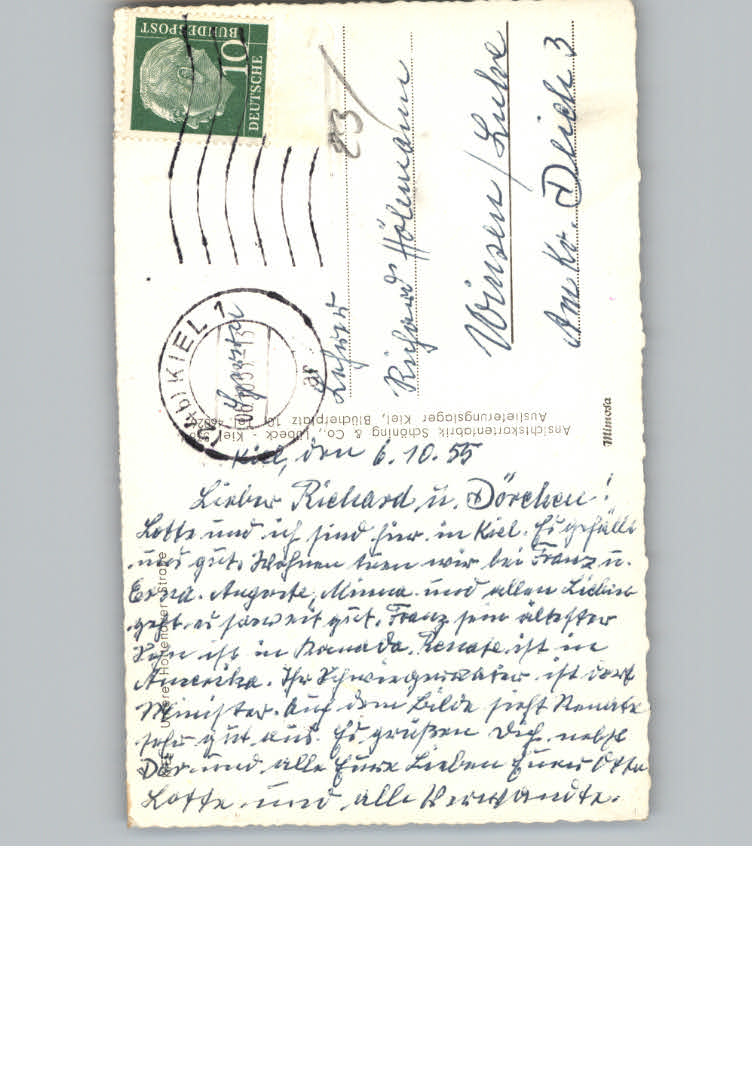 Kiel, den 6.10.55
Lieber Richard u. Dörchen!
Lotte und ich sind hier in Kiel. Es gefällt
uns gut. Wohnen tuen wir bei Franz u.
Erna. Auguste, Minna und allen Lieben
geht es soweit gut. Franz sein ältester
Sohn ist in Kanada. Renate ist in
Amerika. Ihr Schwiegervater ist dort
Minister. Auf dem Bilde sieht Renate
sehr gut aus. Es grüßen Dich nebst
Dor. und alle Eure Lieben Euer Otto
Lotte und alle Verwandte.
Ansichtskartenfabrik Schöning & Co., Lübeck - Kiel
Auslieferungslager Kiel, Blücherplatz 10
Mimosa
DEUTSCHE
BUNDESPOST
10
KIEL 1
23
Lehrer
Richard Höhmann
Winsen/Luhe
Am Kr. Deich 3